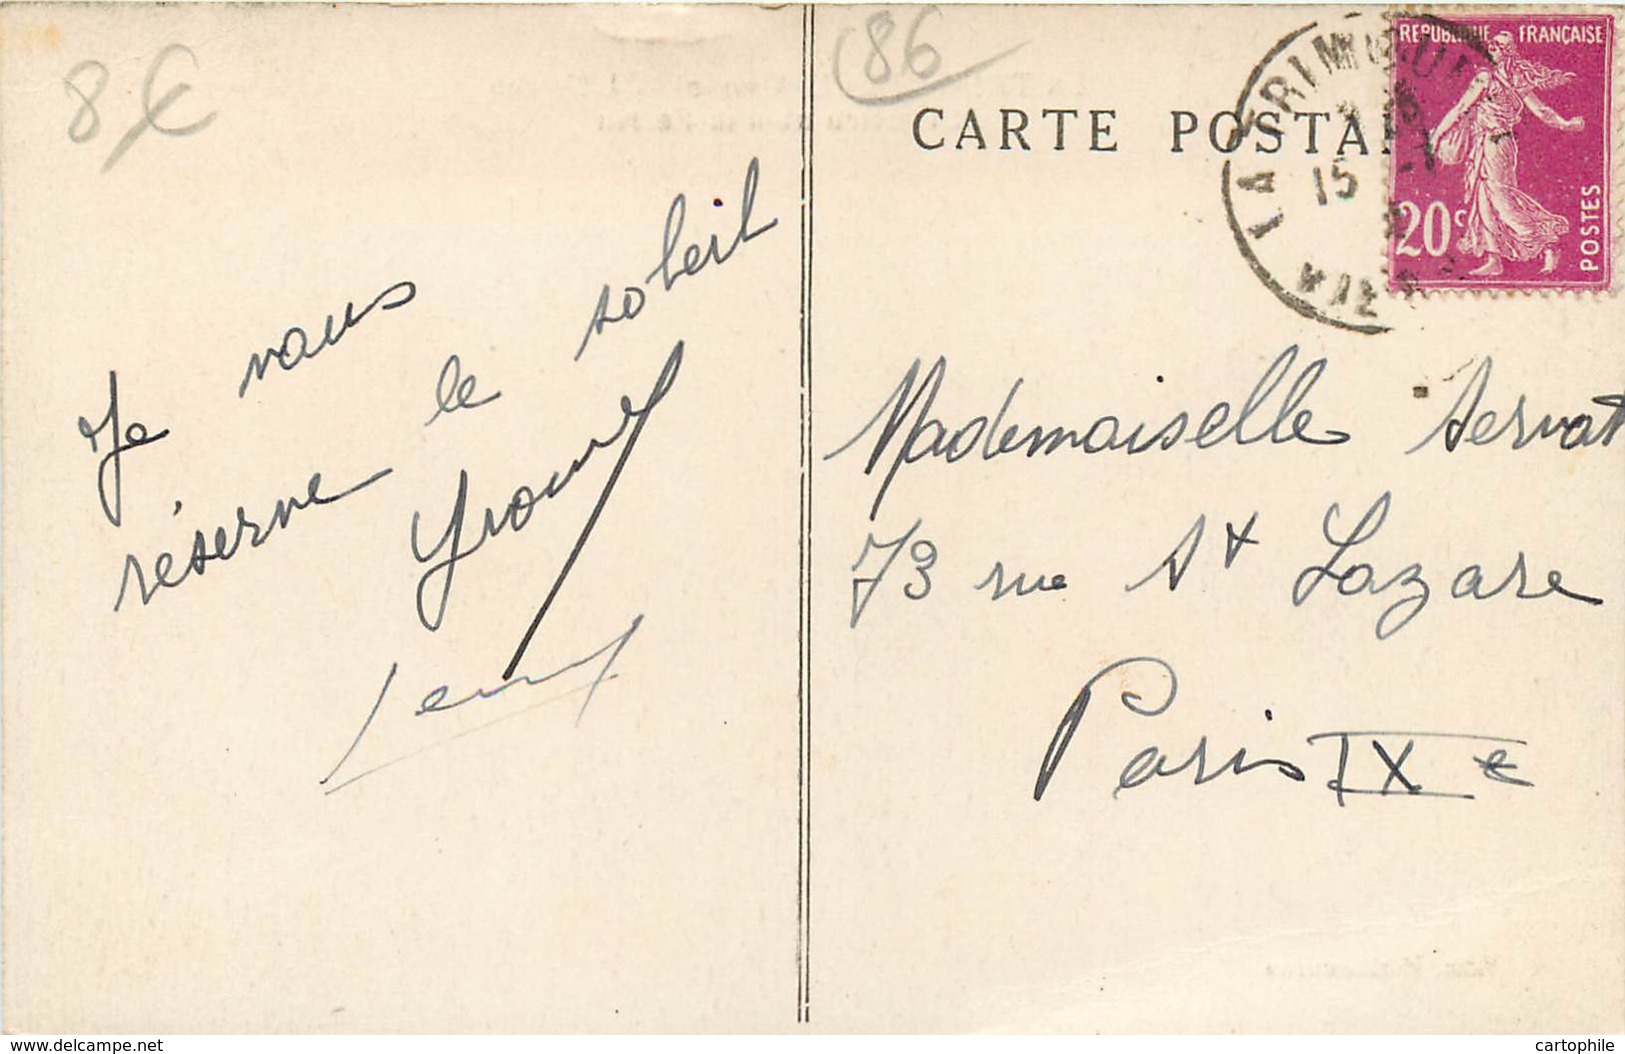 8€
86
CARTE POSTA
RÉPUBLIQUE FRANÇAISE
20c
POSTES
LA TRIMOUI
15
VIE
Je vous
réserve le soleil
Yvonne
Mademoiselle Servat
73 rue St Lazare
Paris IXe
www.delcampe.net
cartophile